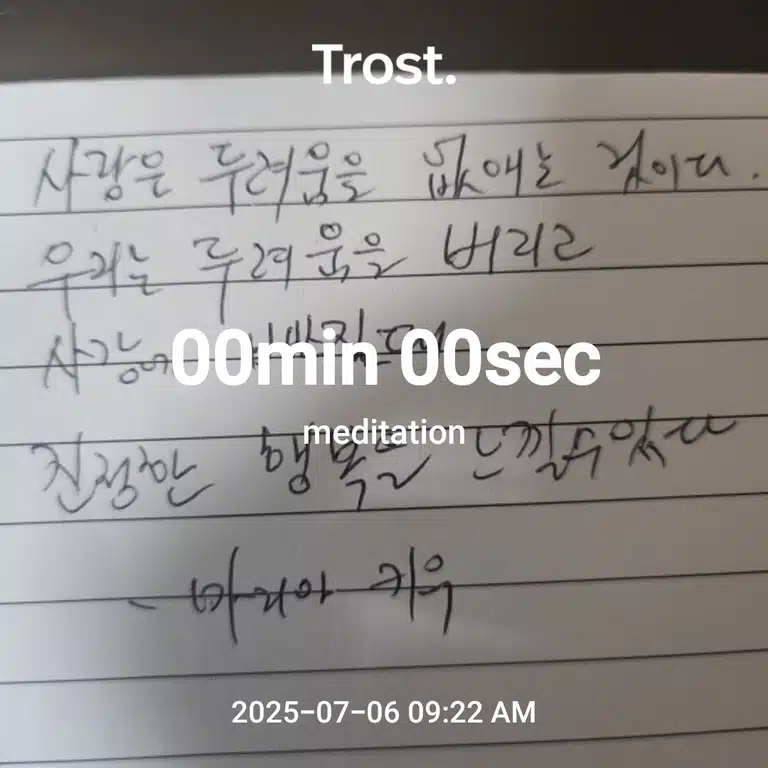 Trost.
사랑은 두려움을 없애는 것이다.
우리는 두려움을 버리고
사랑에
00min 00sec
meditation
진정한 행복을 느낄수있다
- 마리아 키욱
2025-07-06 09:22 AM